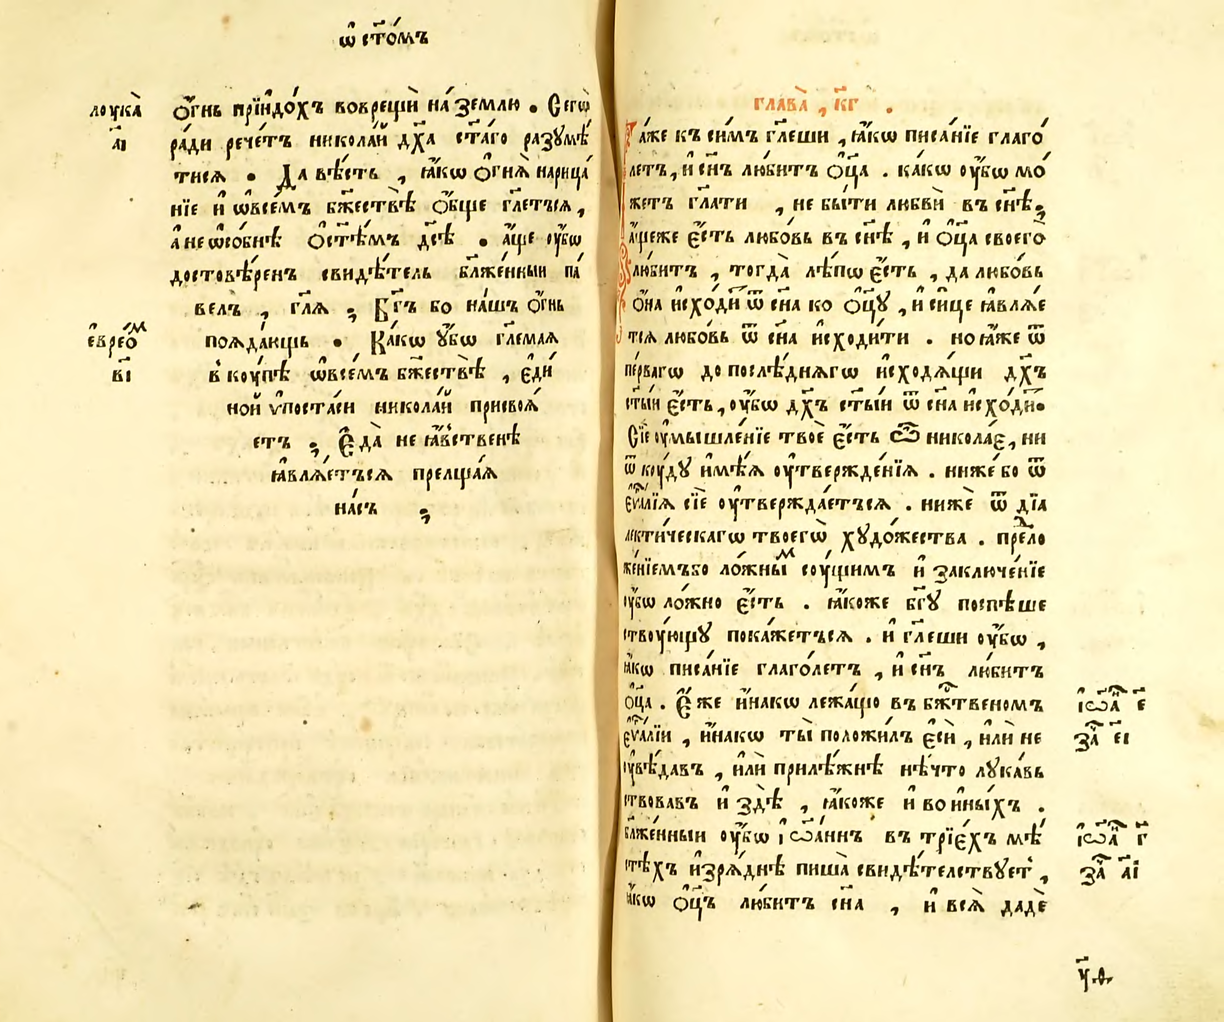 ѡ҆ ст҃о́мъ
лоука̀
а҃і
ѻ҆́гнь прїидо́хъ воврещѝ на́ землю . Сегѡ̀
ра́ди рече́тъ никола́й дх҃а ст҃а́го разꙋмѣ́
тисѧ . Да вѣ́сть , ꙗ҆́кѡ ѻ҆гнѧ̀ нарица́
нїе и҆ ѡ҆все́мъ бж҃ествѣ̀ ѻ҆́бще гл҃етъсѧ ,
а҆ не ѡ҆со́бнѣ ѻ҆ ст҃ѣ́мъ дс҃ѣ . а҆́ще ᲂу҆́бѡ
достовѣ́ренъ свидѣ́тель бл҃же́нныи па́
велъ , гл҃ѧ ; Бг҃ъ бо на́шъ ѻ҆́гнь
є҆вреѡ́м
в҃і
поѧда́ющь . Ка́кѡ ᲂу҆́бѡ гл҃емаѧ
в коу́пѣ ѡ҆все́мъ бж҃ествѣ̀ , є҆ди́
ной ѵ҆поста́си никола́й присвоѧ́
етъ ; Є҆да̀ не ꙗ҆́вственѣ
ꙗ҆влѧ́етъсѧ прелща́ѧ
на́съ ;
глава̀ , к҃г .
Та́же къ си́мъ гл҃еши , ꙗ҆́кѡ писа́нїе глаго́
летъ , и҆ сн҃ъ лю́битъ ѻ҆ц҃а . ка́кѡ ᲂу҆́бѡ мо́
жетъ гл҃ати , не бы́ти любвѝ въ сн҃ѣ ;
а҆́щеже є҆́сть любо́вь въ сн҃ѣ , и҆ ѻ҆ц҃а своего̀
лю́битъ , тогда̀ лѣ́пѡ є҆́сть , да любо́вь
ѻ҆на̀ и҆схо́дит ѿ сн҃а ко ѻ҆ц҃ꙋ , и҆ си́це ꙗ҆влѧ́е
тсѧ любо́вь ѿ сн҃а и҆сходи́ти . но ꙗ҆́же ѿ
пе́рвагѡ до послѣ́днѧгѡ и҆сходѧ́щи дх҃ъ
ст҃ы́и є҆́сть , ᲂу҆́бѡ дх҃ъ ст҃ы́и ѿ сн҃а и҆схо́дит .
Сїе ᲂу҆мышле́нїе твоѐ є҆́сть ѽ никола́є , ни
ѿ коу́дꙋ и҆мѣ́ѧ ᲂу҆твержде́нїѧ . ниже́ бо ѿ
є҆ѵ҆лїѧ сїѐ ᲂу҆твержда́етъсѧ . нижѐ ѿ дїа
лекти́ческагѡ твоегѡ̀ хꙋдо́жества . предло
же́нїемъбо ло́жным соу́щимъ и҆ заключе́нїе
ᲂу҆́бѡ ло́жно є҆́сть . ꙗ҆́коже бг҃ꙋ поспѣ́ше
ствоу́ющꙋ пока́жетъсѧ . и҆ гл҃еши ᲂу҆́бѡ ,
ꙗ҆́кѡ писа́нїе глаго́летъ , и҆ сн҃ъ лю́битъ
ѻ҆ц҃а . Є҆́же и҆́накѡ лежа́щю въ бж҃твеном
і҆ѡа́ н є҃
є҆ѵ҆лїи , и҆́накѡ ты̀ положи́лъ є҆сѝ , и҆лѝ не
за҃ є҃і
ᲂу҆вѣ́давъ , и҆лѝ прилѣ́жнѣ нѣ́что лꙋка́вь
ствовавъ и҆ здѣ̀ , ꙗ҆́коже и҆ во и҆ны́хъ .
бл҃же́нныи ᲂу҆́бѡ і҆ѡа́ннъ въ трїе́хъ мѣ́
і҆ѡа́ н г҃
стѣхъ и҆зрѧ́днѣ пиша̀ свидѣ́телствꙋет ,
за҃ а҃і
ꙗ҆́кѡ ѻ҆ц҃ъ лю́битъ сн҃а , и҆ всѧ̀ дадѐ
ч҃.ѳ.